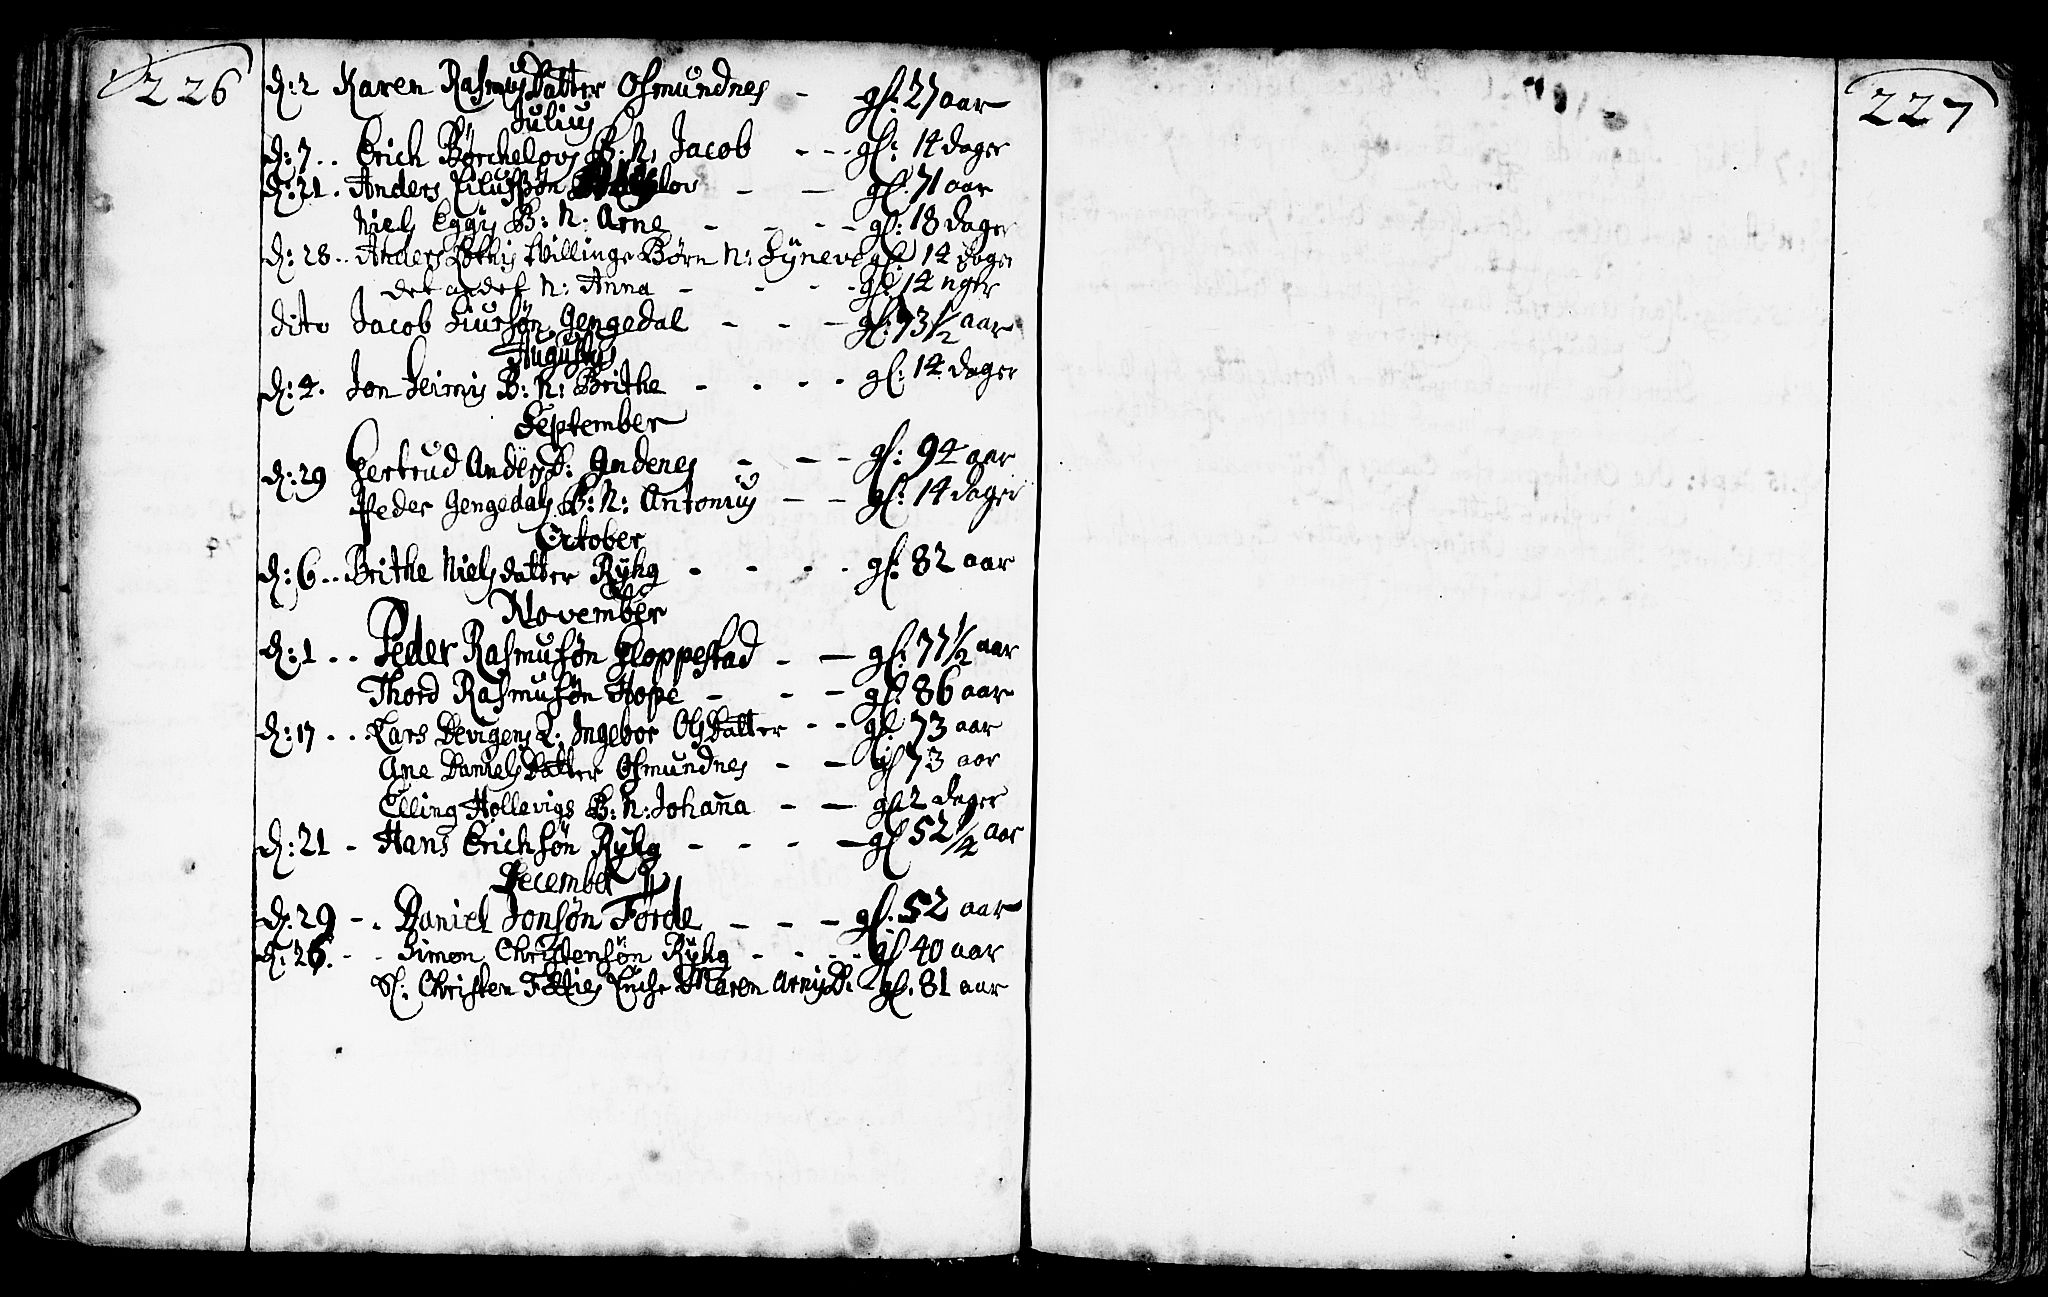 226
d: 2 Karen Rasmusdatter Osmundnes - gl: 27 aar
Julius
d: 7 .. Erich Børchelovs B: N: Jacob - - - gl: 14 dager
d: 21 . Anders - - gl: 71 aar
Niels Eggis B: N: Arne - - - - gl: 18 dager
d: 28 .. Anders tvillinge Børn N: Syneve gl: 14 dager
det andet N: Anna - - - - gl: 14 ugkr
dito Jacob Siursøn Gengedal - - - gl: 73 1/2 aar
Augustus
d: 4. Jon B: N: Brithe - - - - gl: 14 dager
September
d: 29 Gertrud Andersd: Andenes - - - gl: 94 aar
Peder Gengedals B: N: Antonius - - gl: 14 dager
October
d: 6 .. Brithe Nielsdatter Rÿhg - - - - gl: 82 aar
November
d: 1 .. Peder Rasmusøn Gloppestad - - gl: 77 1/2 aar
Thord Rasmusøn Hope - - - gl: 86 aar
d: 17 .. Lars Devigens K: Ingebor Olsdatter - - gl: 73 aar
Ane Danielsdatter Osmundnes - - gl 73 aar
Elling Hollevigs B: N: Johaña - - gl 2 dager
d: 21 - Hans Erichsøn Rÿhg - - - - gl 52 1/4 aar
December
d: 29 - . Daniel Jonsøn Förde - - - gl. 52 aar
d: 26. - - Simon Christensøn Rÿhg - - - - gl 40 aar
Sl: Christen Encke Maren gl. 81 aar
227